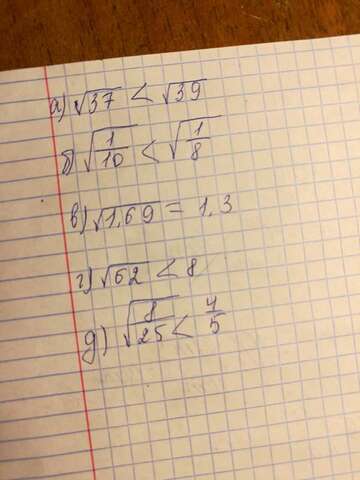 а) √37 < √39
б) √1/10 < √1/8
в) √1,69 = 1,3
г) √62 < 8
д) √8/25 < 4/5